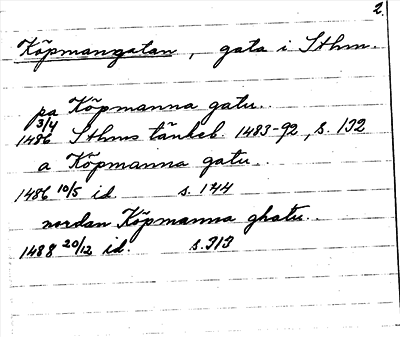 2.
Köpmangatan, gata i Sthm.
pa Köpmanna gatu..
1486 3/4 Sthms tänkeb. 1483-92, s. 132
a Köpmanna gatu..
1486 10/5 id. s. 144
nordan Köpmanna ghatu..
1488 20/12 id. s. 313